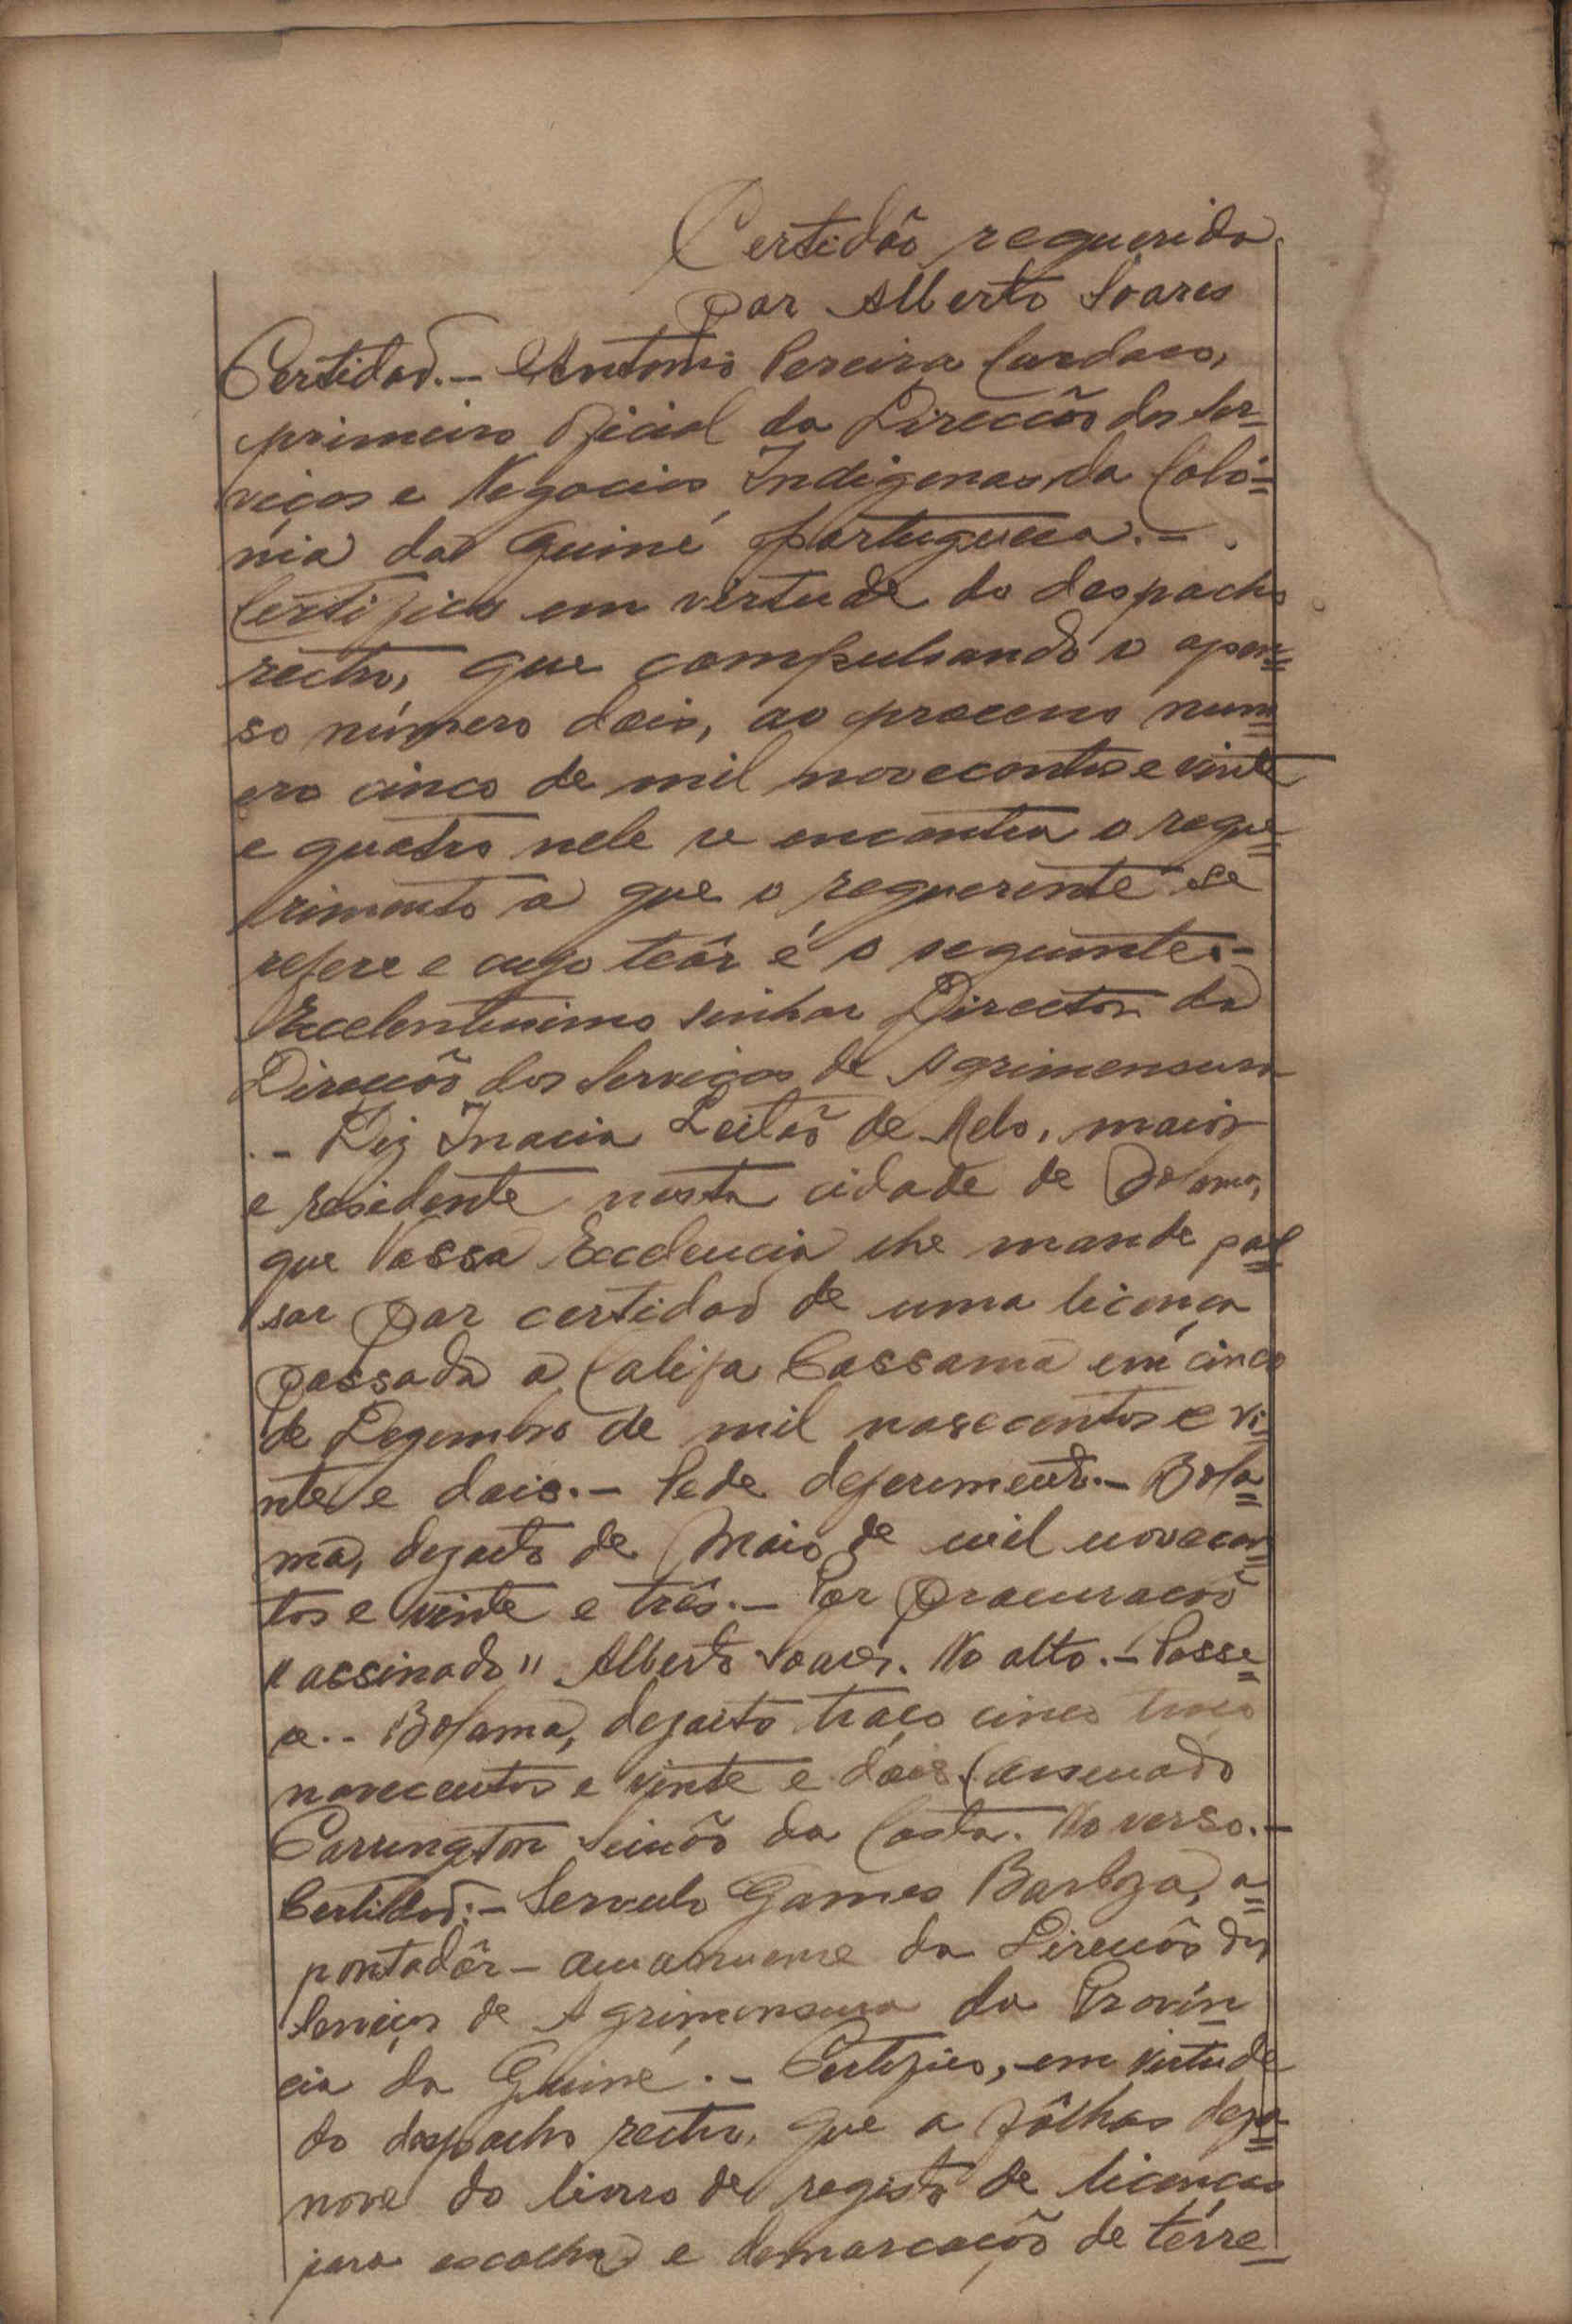 Certidão requerida
por Alberto Soares
Certidão.- Antonio Pereira Cardoso,
primeiro oficial da Direcção dos Ser-
viços e Negocios Indigenas da Coló-
nia da Guiné Portuguesa.-
Certifico em virtude do despacho
rectro, que compulsando o apen-
so número dois, ao processo num-
ero cinco de mil novecentos e vinte
e quatro nele se encontra o reque-
rimento a que o requerente se
refere e cujo teôr é o seguinte:-
Excelentissimo senhor Director da
Direcção dos Serviços de Agrimensura
.- Diz Inacia Leitão de Melo, maior
e residente nesta cidade de Bolama,
que Vossa Excelencia lhe mande pas-
sar por certidão de uma licença
passada a Califa Cassamá em cinco
de Dezembro de mil novecentos e vi-
nte e dois.- Pede deferimento.- Bola-
ma, dezoito de Maio de mil novecen-
tos e vinte e três.- Por procuração
"assinado" Alberto Soares. No alto.- Passe-
se.- Bolama, dezoito traço cinco traço
novecentos e vinte e dois (assinado
Carrington Simões da Costa. No verso.-
Certidão:- Servulo Gomes Barboza, a-
pontadôr-amanuense da Direcção dos
Serviços de Agrimensura da Provín-
cia da Guiné.- Certifico, em virtude
do despacho rectro, que a fôlhas deza-
nove do livro de registo de licenças
para escolha e demarcação de terre-